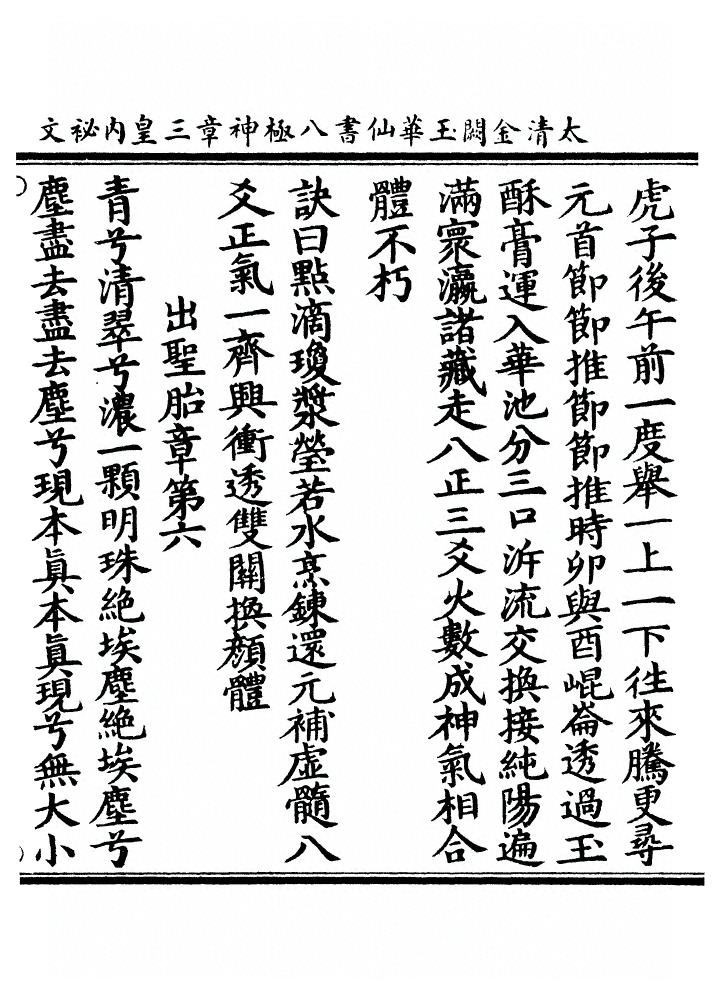 太清金闕玉華仙書八極神章三皇內祕文
虎子後午前一度舉一上一下往來騰更尋
元首節節推節節推時卯與酉崐崙透過玉
酥膏運入華池分三口泝流交換接純陽遍
滿寰瀛諸藏走八正三爻火數成神氣相合
體不朽
訣曰點滴瓊漿瑩若水烹鍊還元補虛髓八
爻正氣一齊興衝透雙關換顏體
出聖胎章第六
青兮清翠兮濃一顆明珠絕埃塵絕埃塵兮
塵盡去盡去塵兮現本眞本眞現兮無大小